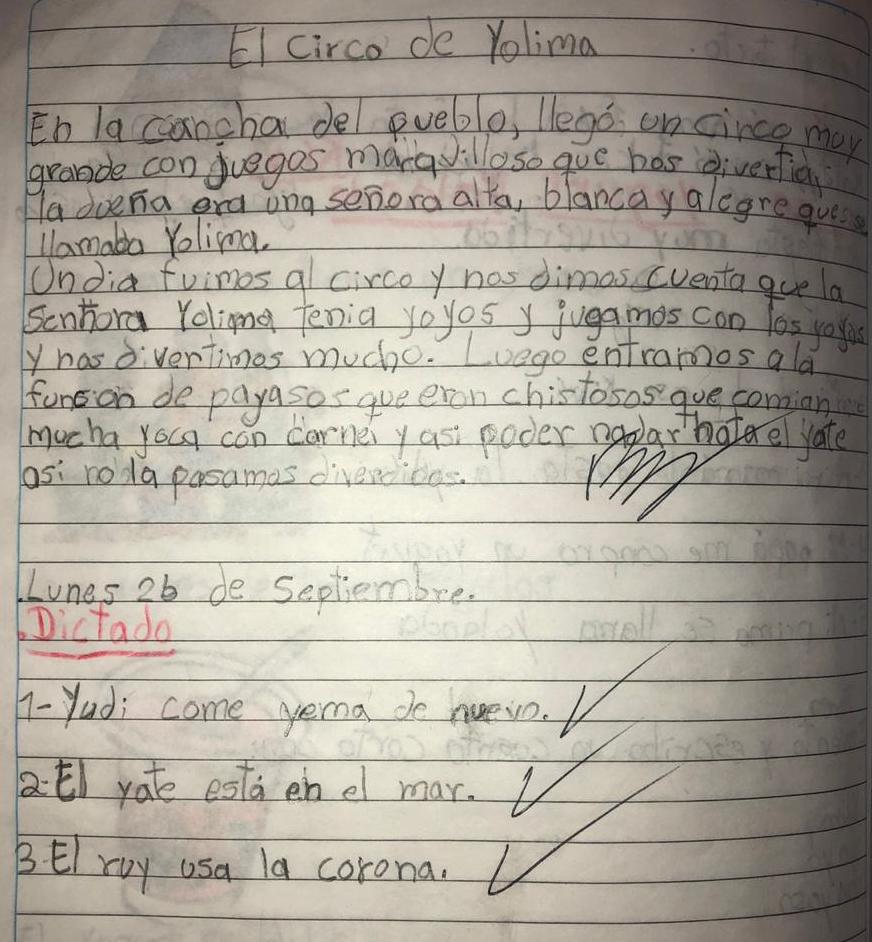 El Circo de Yolima
En la cancha del pueblo, llegó un circo muy
grande con juegos maravilloso que nos divertia,
la dueña era una señora alta, blanca y alegre que se
llamaba Yolima.
Un dia fuimos al circo y nos dimos cuenta que la
Señora Yolima Tenia yoyos y jugamos con los yoyos
y nos divertimos mucho. Luego entramos a la
funcion de payasos que eron chistosos que comian
mucha yoca con carne y asi poder nadar hata el yate
asi no la pasamos divercidas.
.Lunes 26 de Septiembre.
.Dictado
1-Yudi come yema de huevo.
2-El yate está en el mar.
3-El ruy usa la corona.